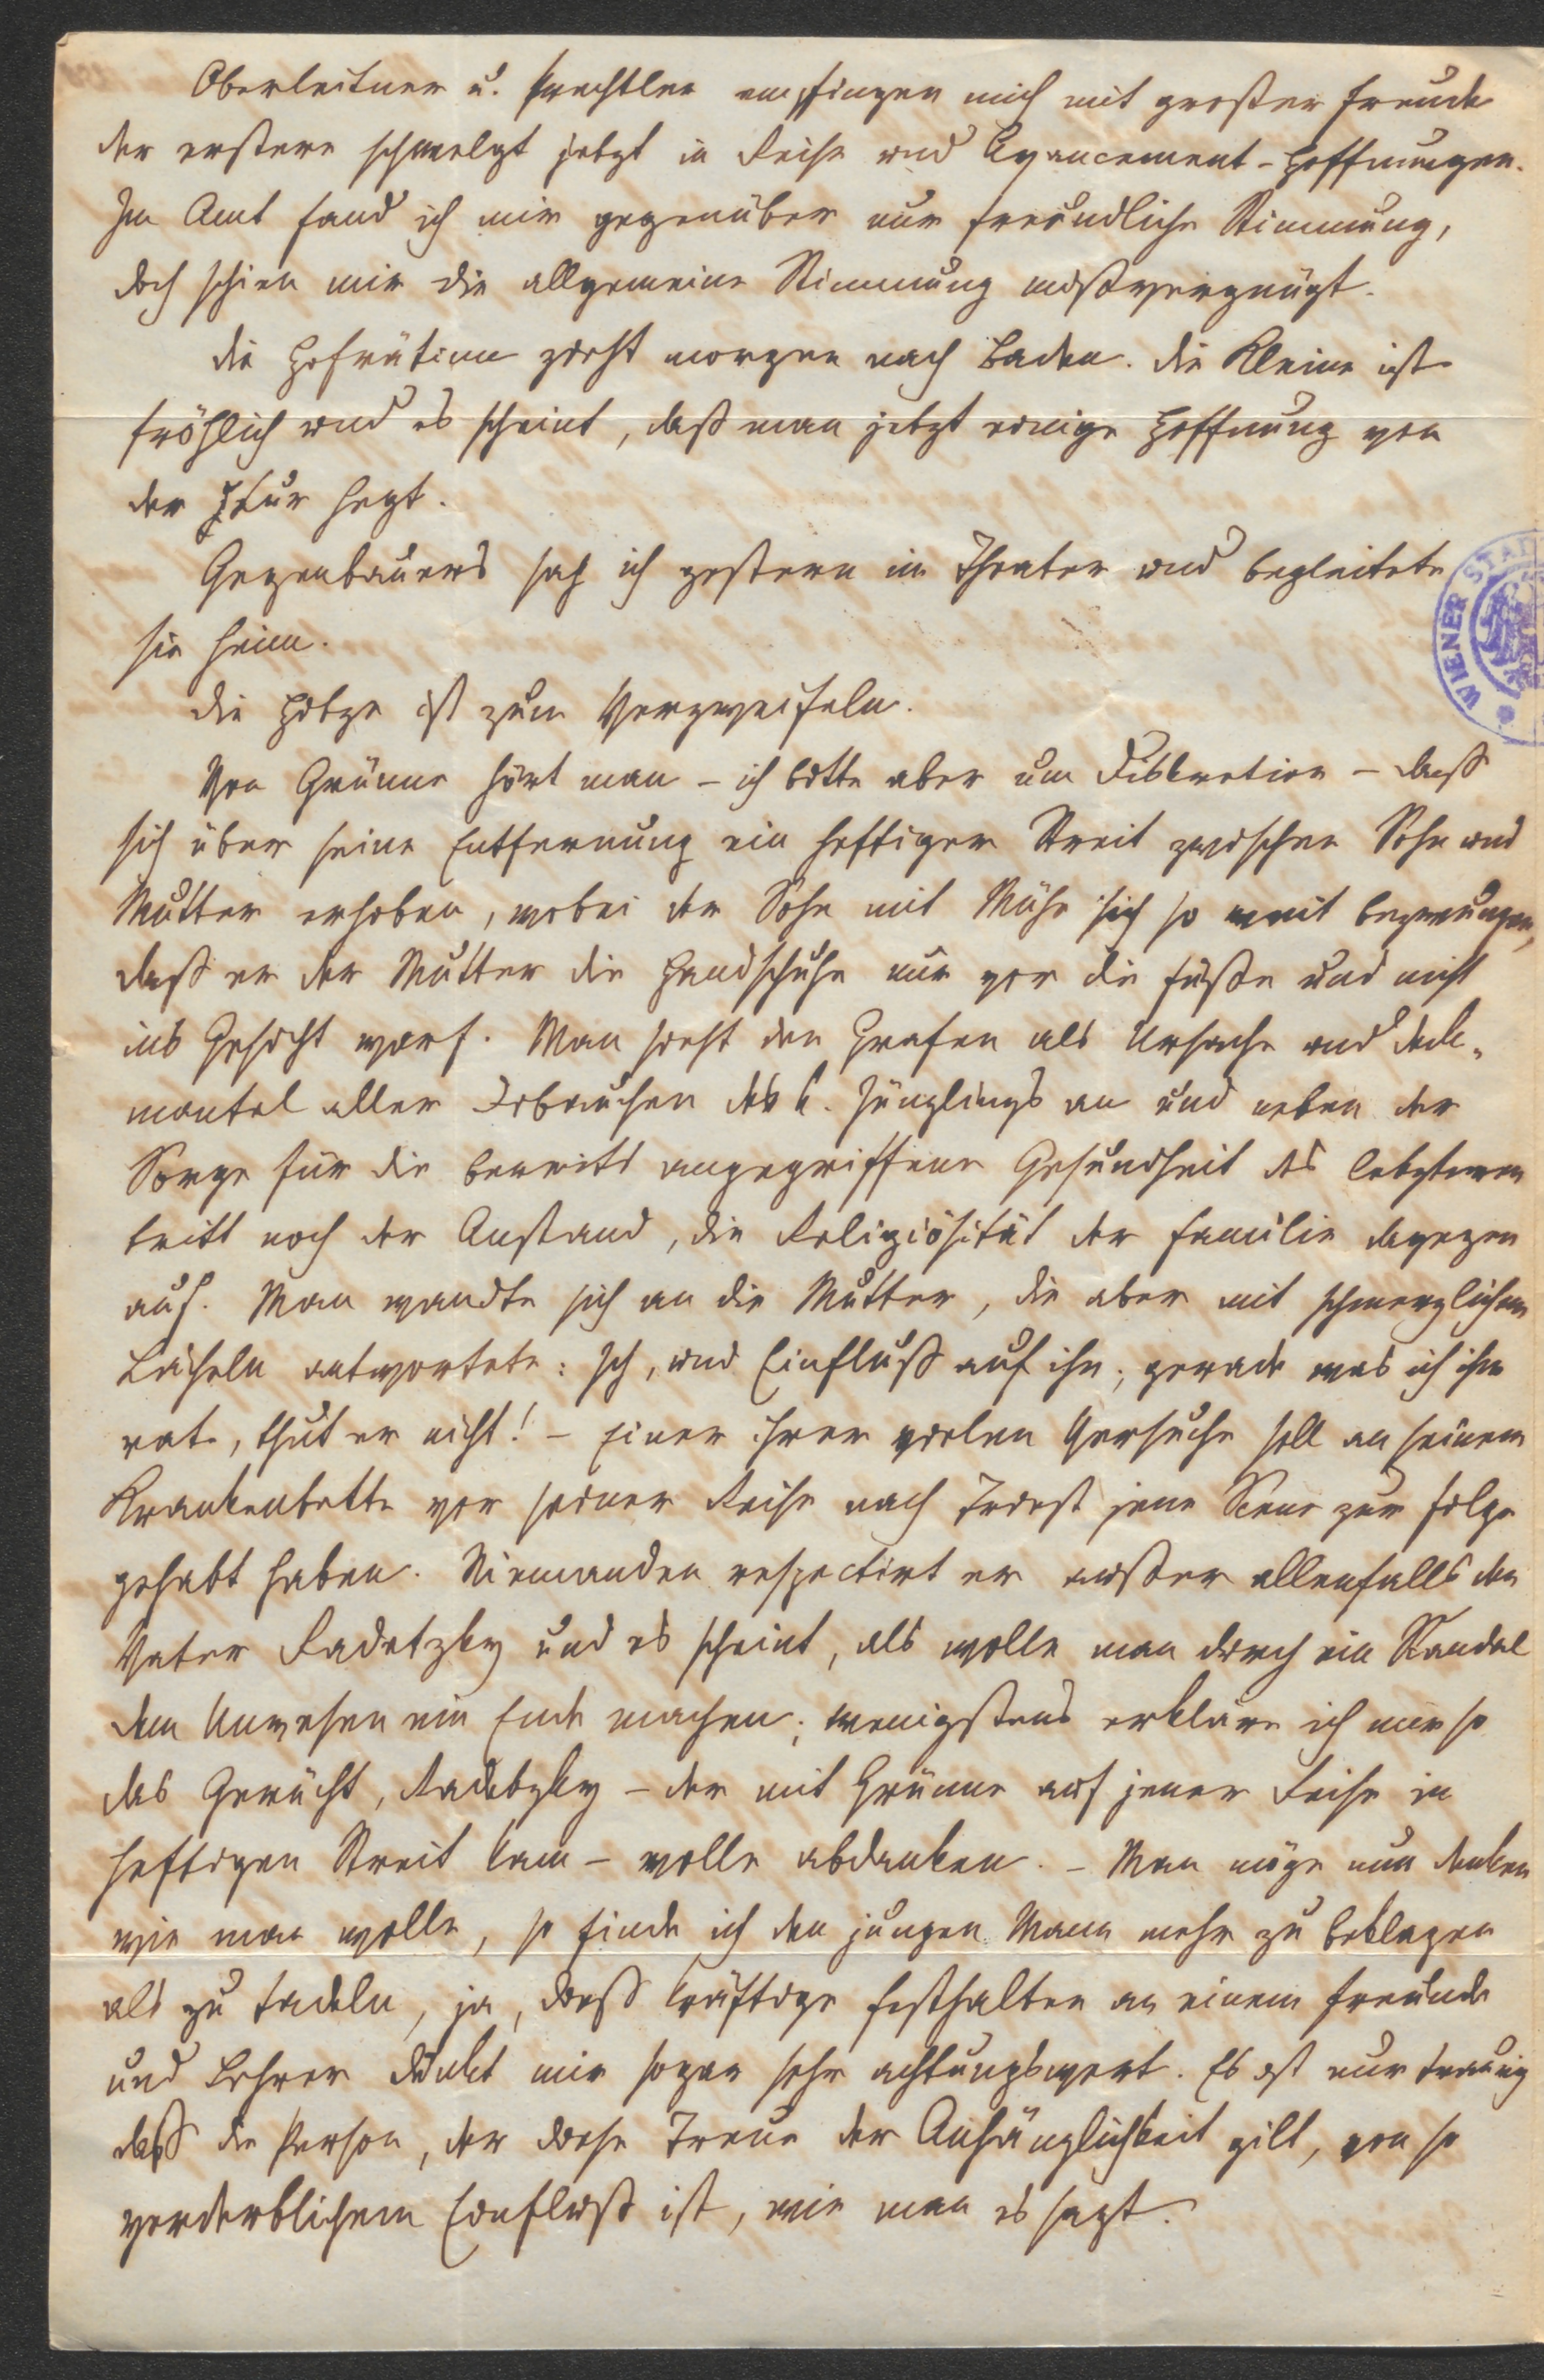 Oberleitner u. Prechtler empfingen mich mit großer Freude
der erstere schwelgt jetzt in Reise und Avancement-Hoffnungen.
Im Amt fand ich mir gegenüber nur freundliche Stimmung,
doch schien mir die allgemeine Stimmung mißvergnügt.
Die Hofrätinn zieht morgen nach Baden. Die Kleine ist
fröhlich und es scheint, daß man jetzt einige Hoffnung von
der Kur hegt.
Gegenbauers sah ich gestern im Theater und begleitete
sie heim.
Die Hitze ist zum Verzweifeln.
Von Grünne hört man – ich bitte aber um Diskretion – daß
sich über seine Entfernung ein heftiger Streit zwischen Sohn und
Mutter erhoben, wobei der Sohn mit Mühe sich so weit bezwungen,
daß er der Mutter die Handschuhe nur vor die Füße und nicht
ins Gesicht warf. Man sieht den Grafen als Ursache und Deck-
mantel aller des k. Jünglings an und neben der
Sorge für die bereits angegriffene Gesundheit des letzteren
tritt noch der Anstand, die Religiösität der Familie dagegen
auf. Man wandte sich an die Mutter, die aber mit schmerzlichem
Lächeln antwortete: Ich, und Einfluß auf ihn; gerade was ich ihm
rate, thut er nicht! – Einer ihrer vielen Versuche soll an seinem
Krankenbette vor seiner Reise nach Triest jene Scene zur Folge
gehabt haben. Niemanden respectirt er außer allenfalls den
Vater Radetzky und es scheint, als wolle man durch ein Skandal
dem Unwesen ein Ende machen; wenigstens erkläre ich mir so
das Gerücht, Radetzky – der mit Grünne auf jener Reise in
heftigen Streit kam – wolle abdanken. – Man möge nun denken
wie man wolle, so finde ich den jungen Mann mehr zu beklagen
als zu tadeln, ja, dieß kräftige Festhalten an einem Freunde
und Lehrer dünkt mir sogar sehr achtungswert. Es ist nur traurig
daß die Person, der diese Treue der Anhänglichkeit gilt, von so
verderblichem Einfluß ist, wie man es sagt.
WIENER STAD